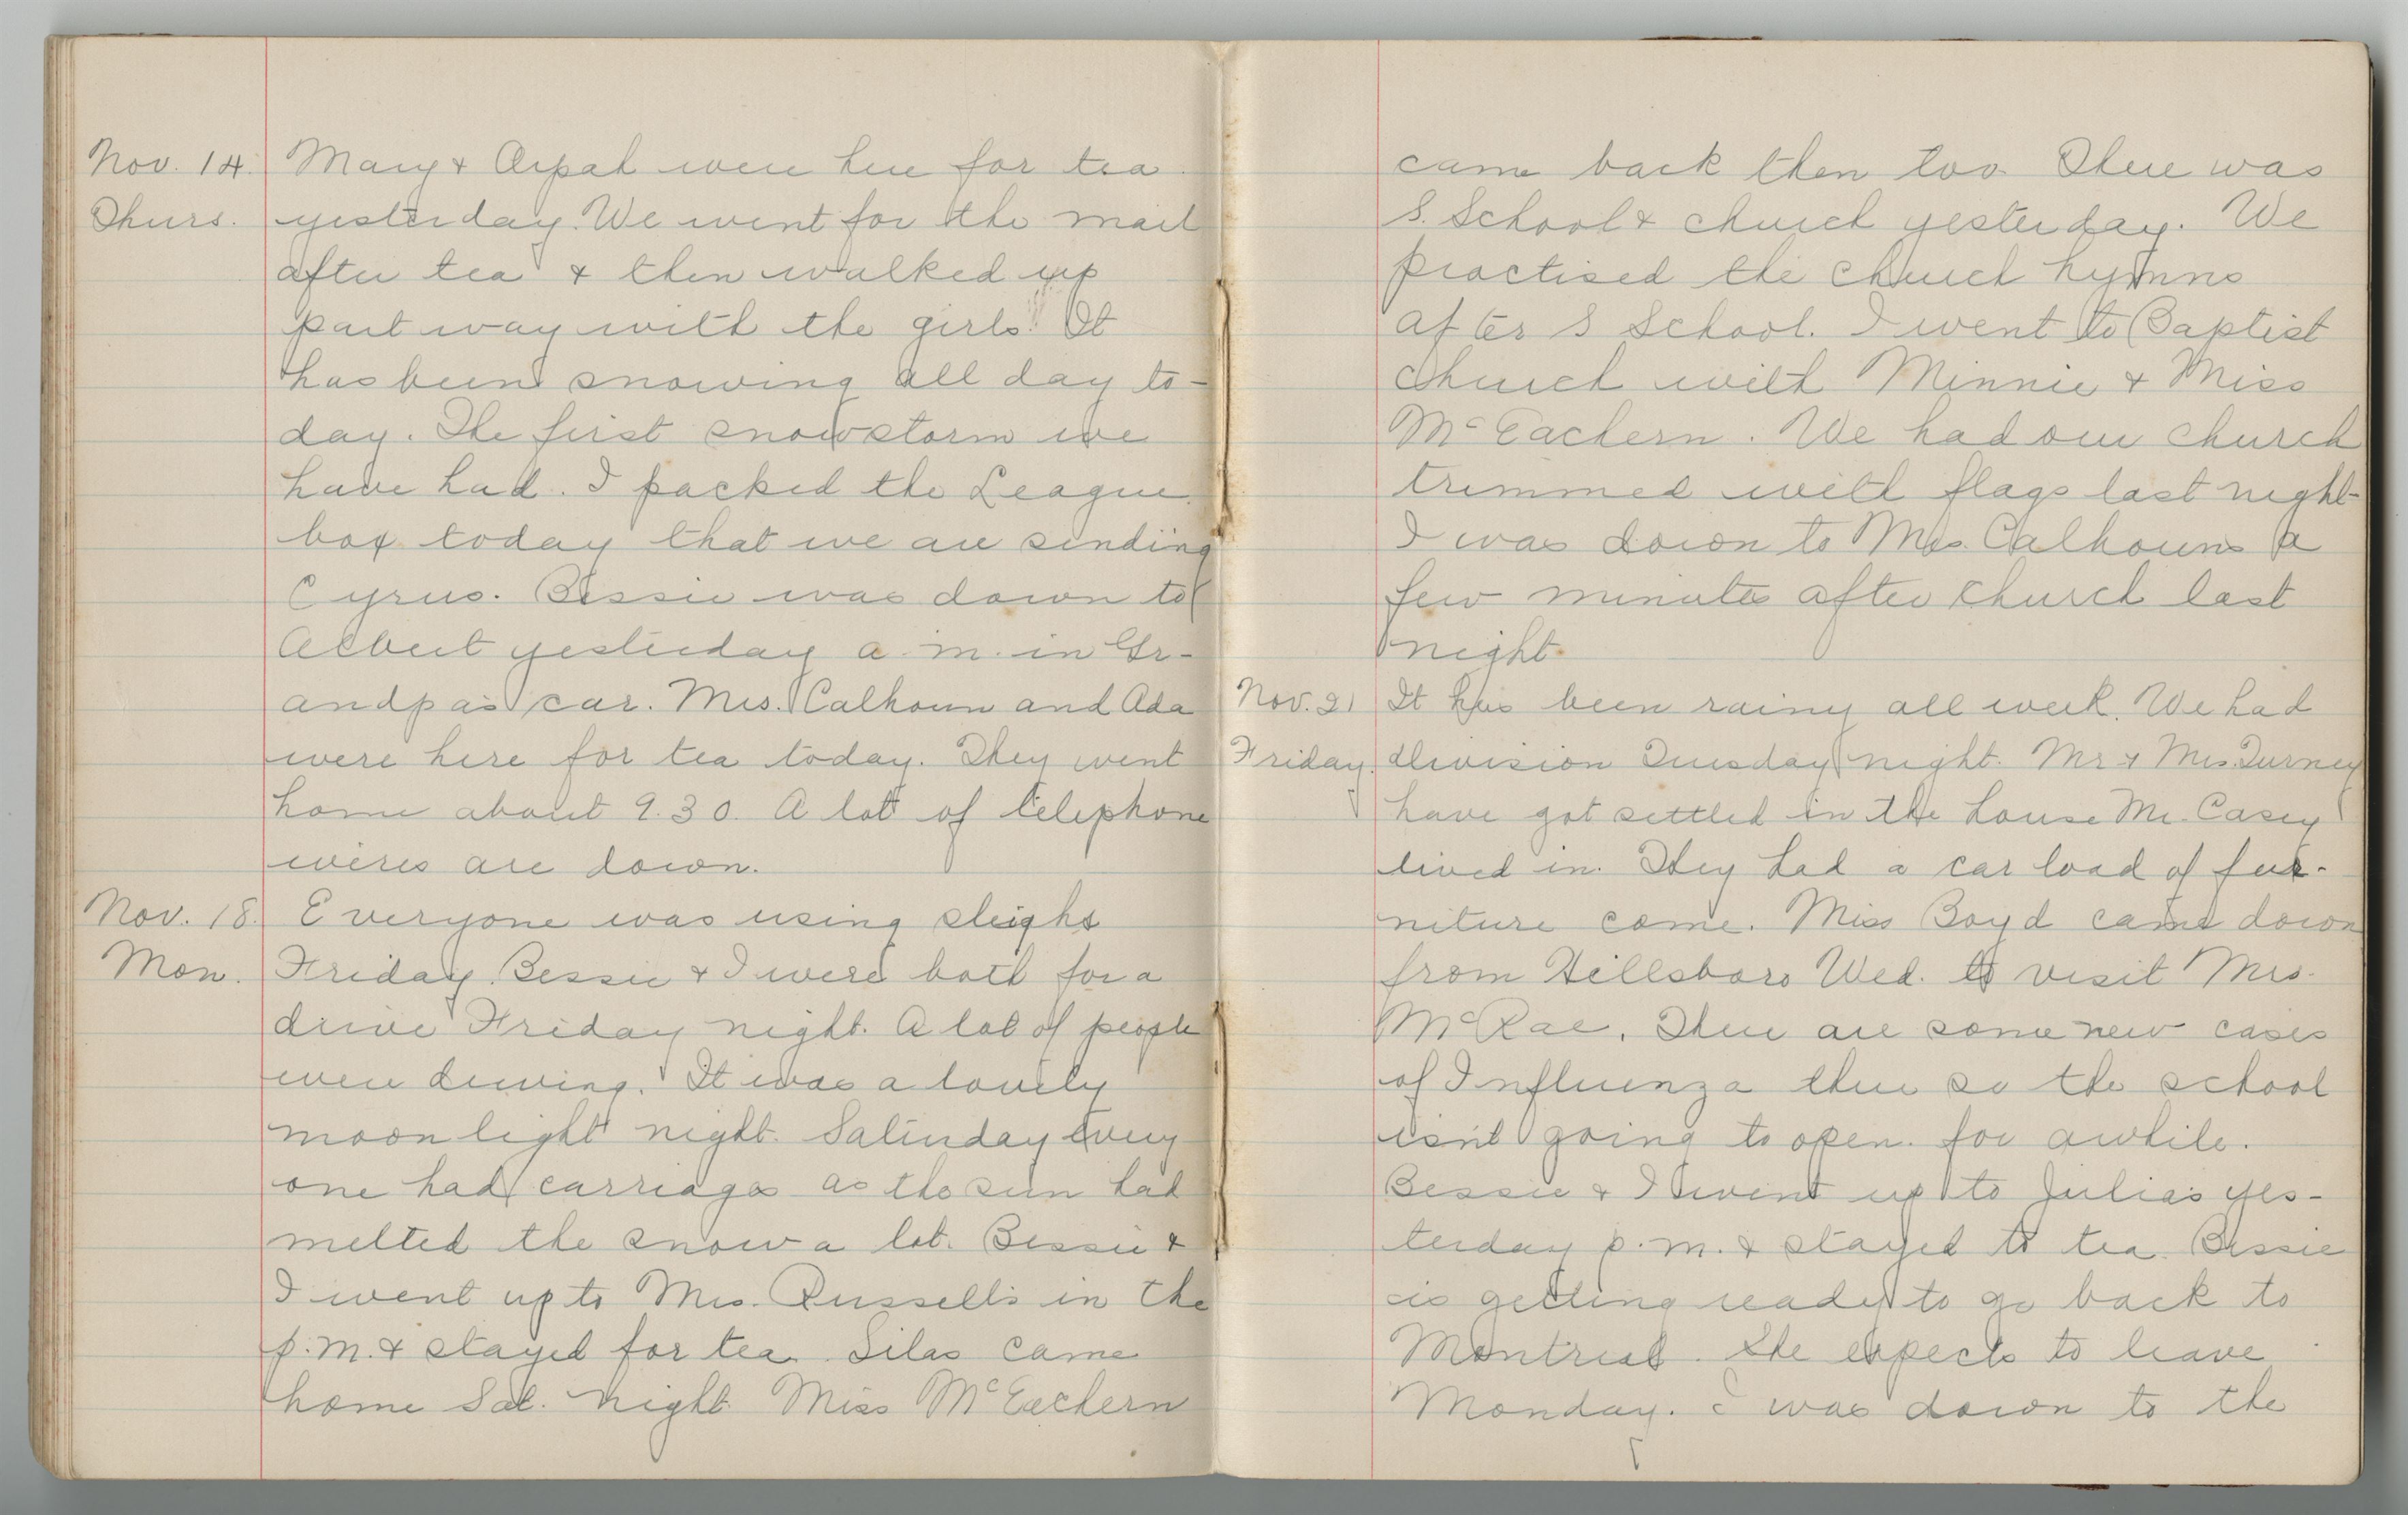 Nov. 14. Mary & Orpah were here for tea
Thurs. yesterday. We went for the mail
after tea & then walked up
part way with the girls. It
has been snowing all day to-
day. The first snowstorm we
have had. I packed the League
box today that we are sending
Cyrus. Bessie was down to
Albert yesterday a.m. in Gr-
andpa's car. Mrs. Calhoun and Ada
were here for tea today. They went
home about 9.30. A lot of telephone
wires are down.
Nov. 18. Everyone was using sleighs
Mon. Friday. Bessie & I were both for a
drive Friday night. A lot of people
were driving. It was a lovely
moonlight night. Saturday every
one had carriages as the sun had
melted the snow a lot. Bessie &
I went up to Mrs. Russell's in the
p.m. & stayed for tea. Silas came
home Sat. night. Miss McEachern
came back then too. There was
S. School & church yesterday. We
practised the church hymns
after S School. I went to Baptist
Church with Minnie & Miss
McEachern. We had our church
trimmed with flags last night.
I was down to Mrs. Calhouns a
few minutes after church last
night.
Nov. 21 It has been rainy all week. We had
Friday. division Tuesday night. Mr & Mrs. Turney
have got settled in the house Mr. Casey
lived in. They had a car load of fur-
niture come. Miss Boyd came down
from Hillsboro Wed. to visit Mrs.
McRae. There are some new cases
of Influenza there so the school
isn't going to open for awhile.
Bessie & I went up to Julia's yes-
terday p.m. & stayed to tea. Bessie
is getting ready to go back to
Montreal. She expects to leave
Monday. I was down to the